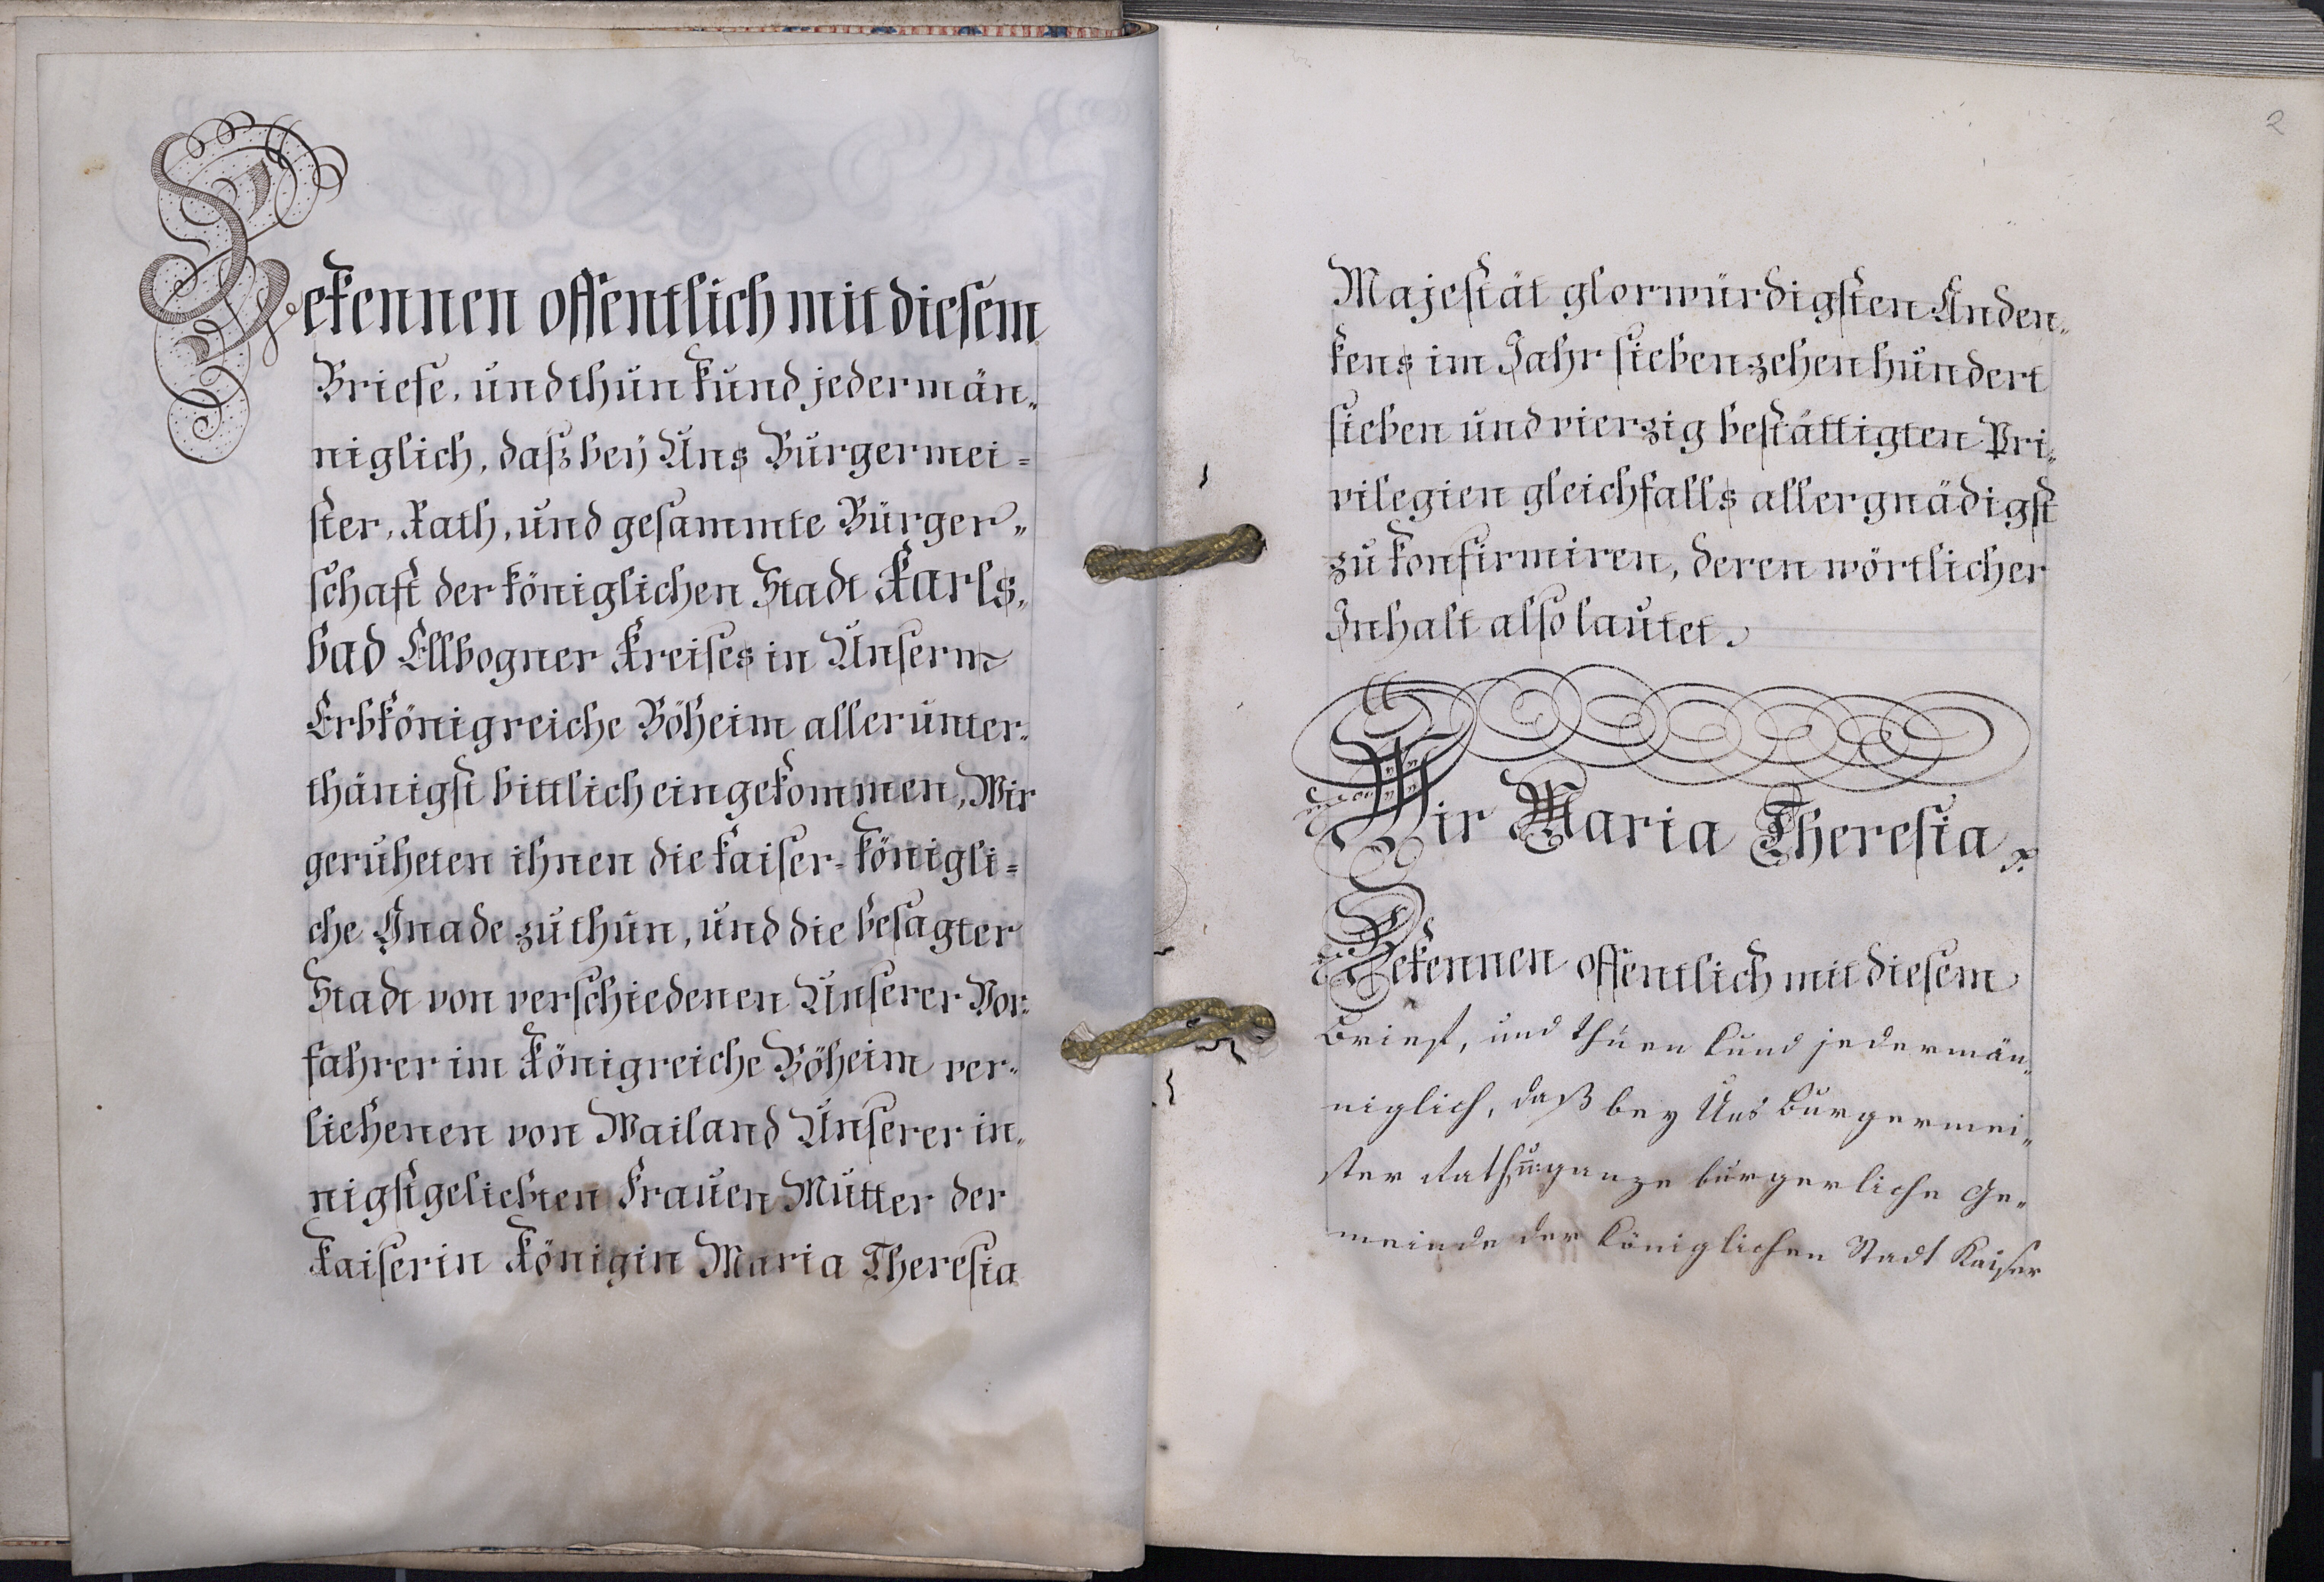 Bekennen offentlich mit diesem
Briefe, und thun kund jedermän„
niglich, daß beÿ Uns Burgermei=
ster, Rath, und gesammte Bürger„
schaft der königlichen Stadt Karls„
bad Ellbogner Kreises in Unserm
Erbkönigreiche Böheim allerunter„
thänigst bittlich eingekommen, Wir
geruheten ihnen die kaiser-königli=
che Gnade zu thun, und die besagter
Stadt von verschiedenen Unserer Vor„
fahrer im Königreiche Böheim ver„
liehenen von Wailand Unserer in„
nigstgeliebten Frauen Mutter der
Kaiserin Königin Maria Theresia
2
Majestät glorwürdigsten Anden„
kens im Jahr siebenzehenhundert
sieben und vierzig bestättigten Pri„
vilegien gleichfalls allergnädigst
zu konfirmiren, deren wörtlicher
Inhalt also lautet.
Wir Maria Theresia
Bekennen offentlich mit diesem
Brief, und thuen kund jedermän„
niglich, daß bey Uns Burgermei„
ster Rath, un: ganze burgerliche Ge„
meinde der königlichen Stadt Kaiser